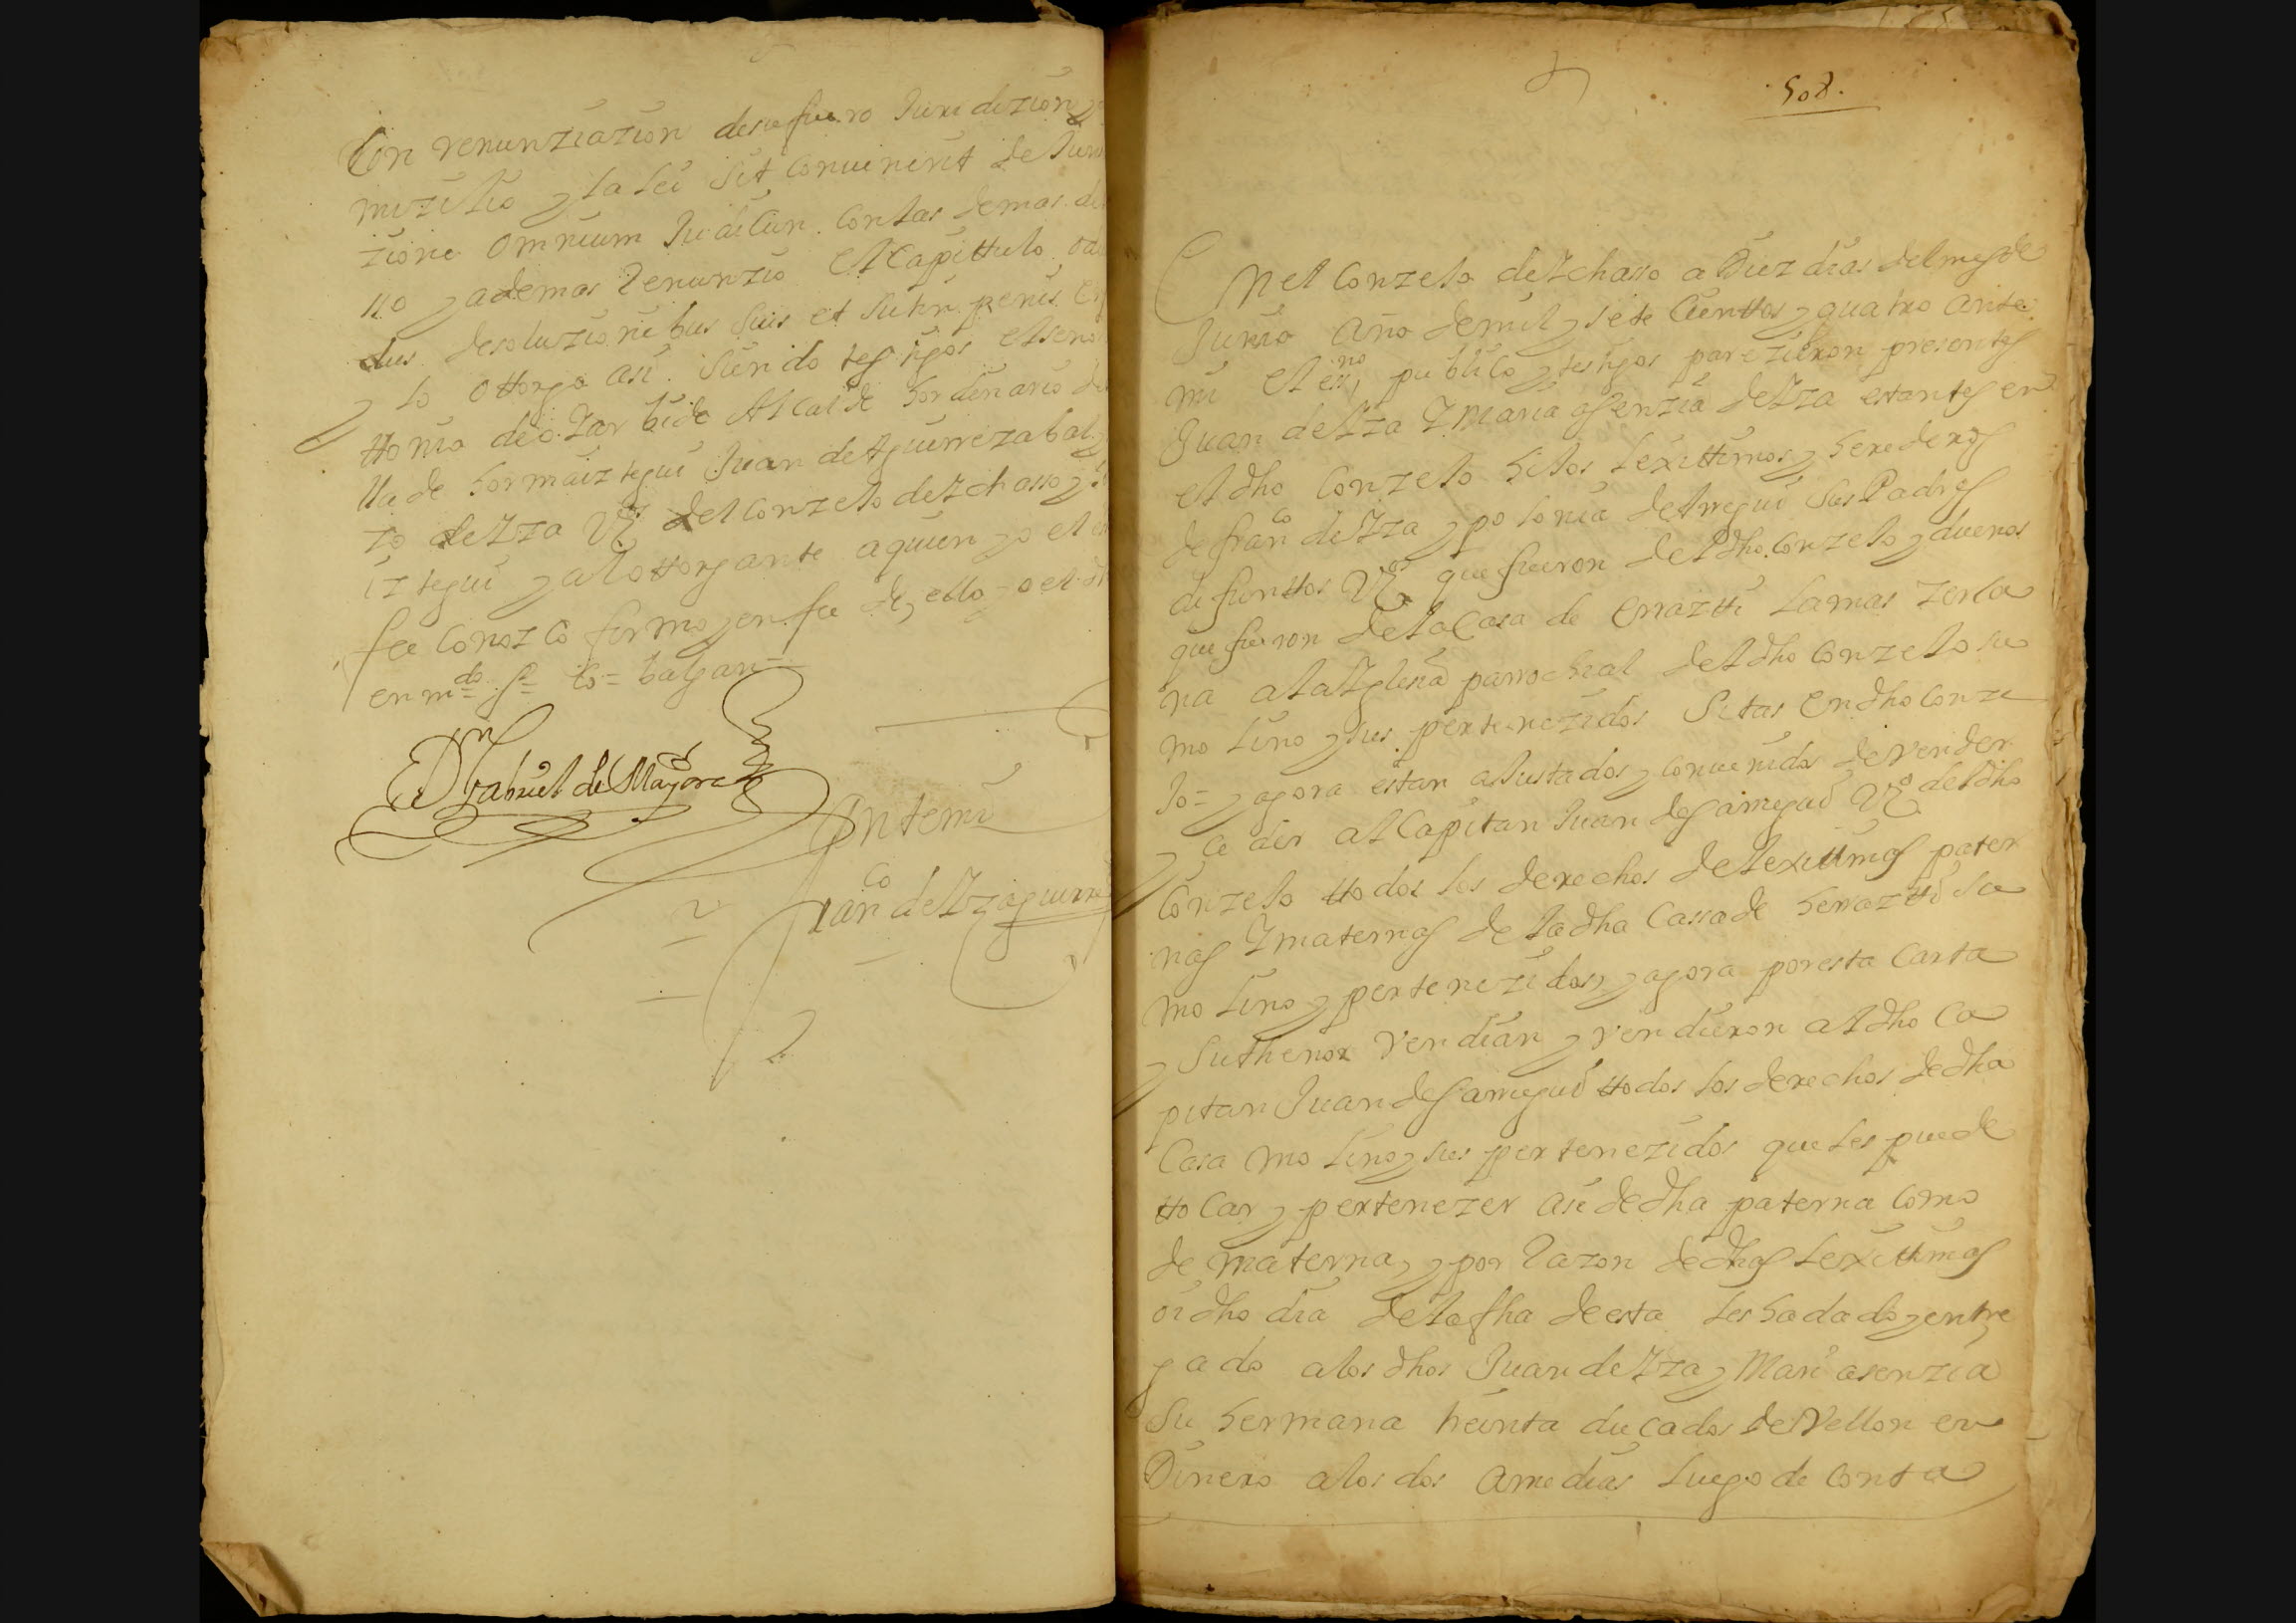 Con renunziazion desu fuero Juridizion y
mizilio y la lei sit convinerit de Juris
zione omnium Judicun. con las demas de
llo y ademas renunzio el Capittulo oa
dus desoluzionibus suis et suhn penis en
y lo ottorgo asi. siendo testigos el seno
ttonio de oLar bide Alcalde hordinario de
lla de hormaiztegui Juan de Aguirrezabal y
zo de Yza Vºs del conzelo de Ychasso y
iztegui y al ottorgante a quien yo el es
fee conozco firmo y en fee de, ello yo el dh
en mdo
Dn Gabriel de Mayora
Antemi
Franco de Yzaguirre
508.
En el conzelo de Ychasso a Diez dias del mes de
Junio año de mil y siete cienttos y quatro ante
mi el essno publico y testigos parezieron presentes
Juan de Yza Y Maria asenzia de Yza estantes en
el dho conzelo hilos lexittimos y herederos
de franco de Yza y polonia de Arregui sus Padres
difunttos Vºs que fueron del dho. conzelo y duenos
que fueron de la Casa de errazti la mas zerca
na a la Yglesia parrochial del dho conzelo su
molino y sus pertenezidos sitas en dho conze
lo = y agora estan aJustados y convenidos de vender
y ceder al Capitan Juan de Sarregui Vº del dho
Conzelo ttodos los derechos de lexittimas pater
nas Y maternas de la dha Cassa de herrazti su
molino y pertenezidos, y agora por esta Carta
y su thenor vendian y vendieron al dho Ca
pitan Juan de Sarregui ttodos los derechos de dha
Casa molino y sus pertenezidos que les puede
ttocar y pertenezer asi de dha paterna como
de materna, y por razon de dhas lexittimas
oi dho dia de la fha de esta les ha dado y entre
gado a los dhos Juan de Yza y Mari asenzia
su hermana treinta ducados de Vellon en
Dinero a los dos amedias luego de conta